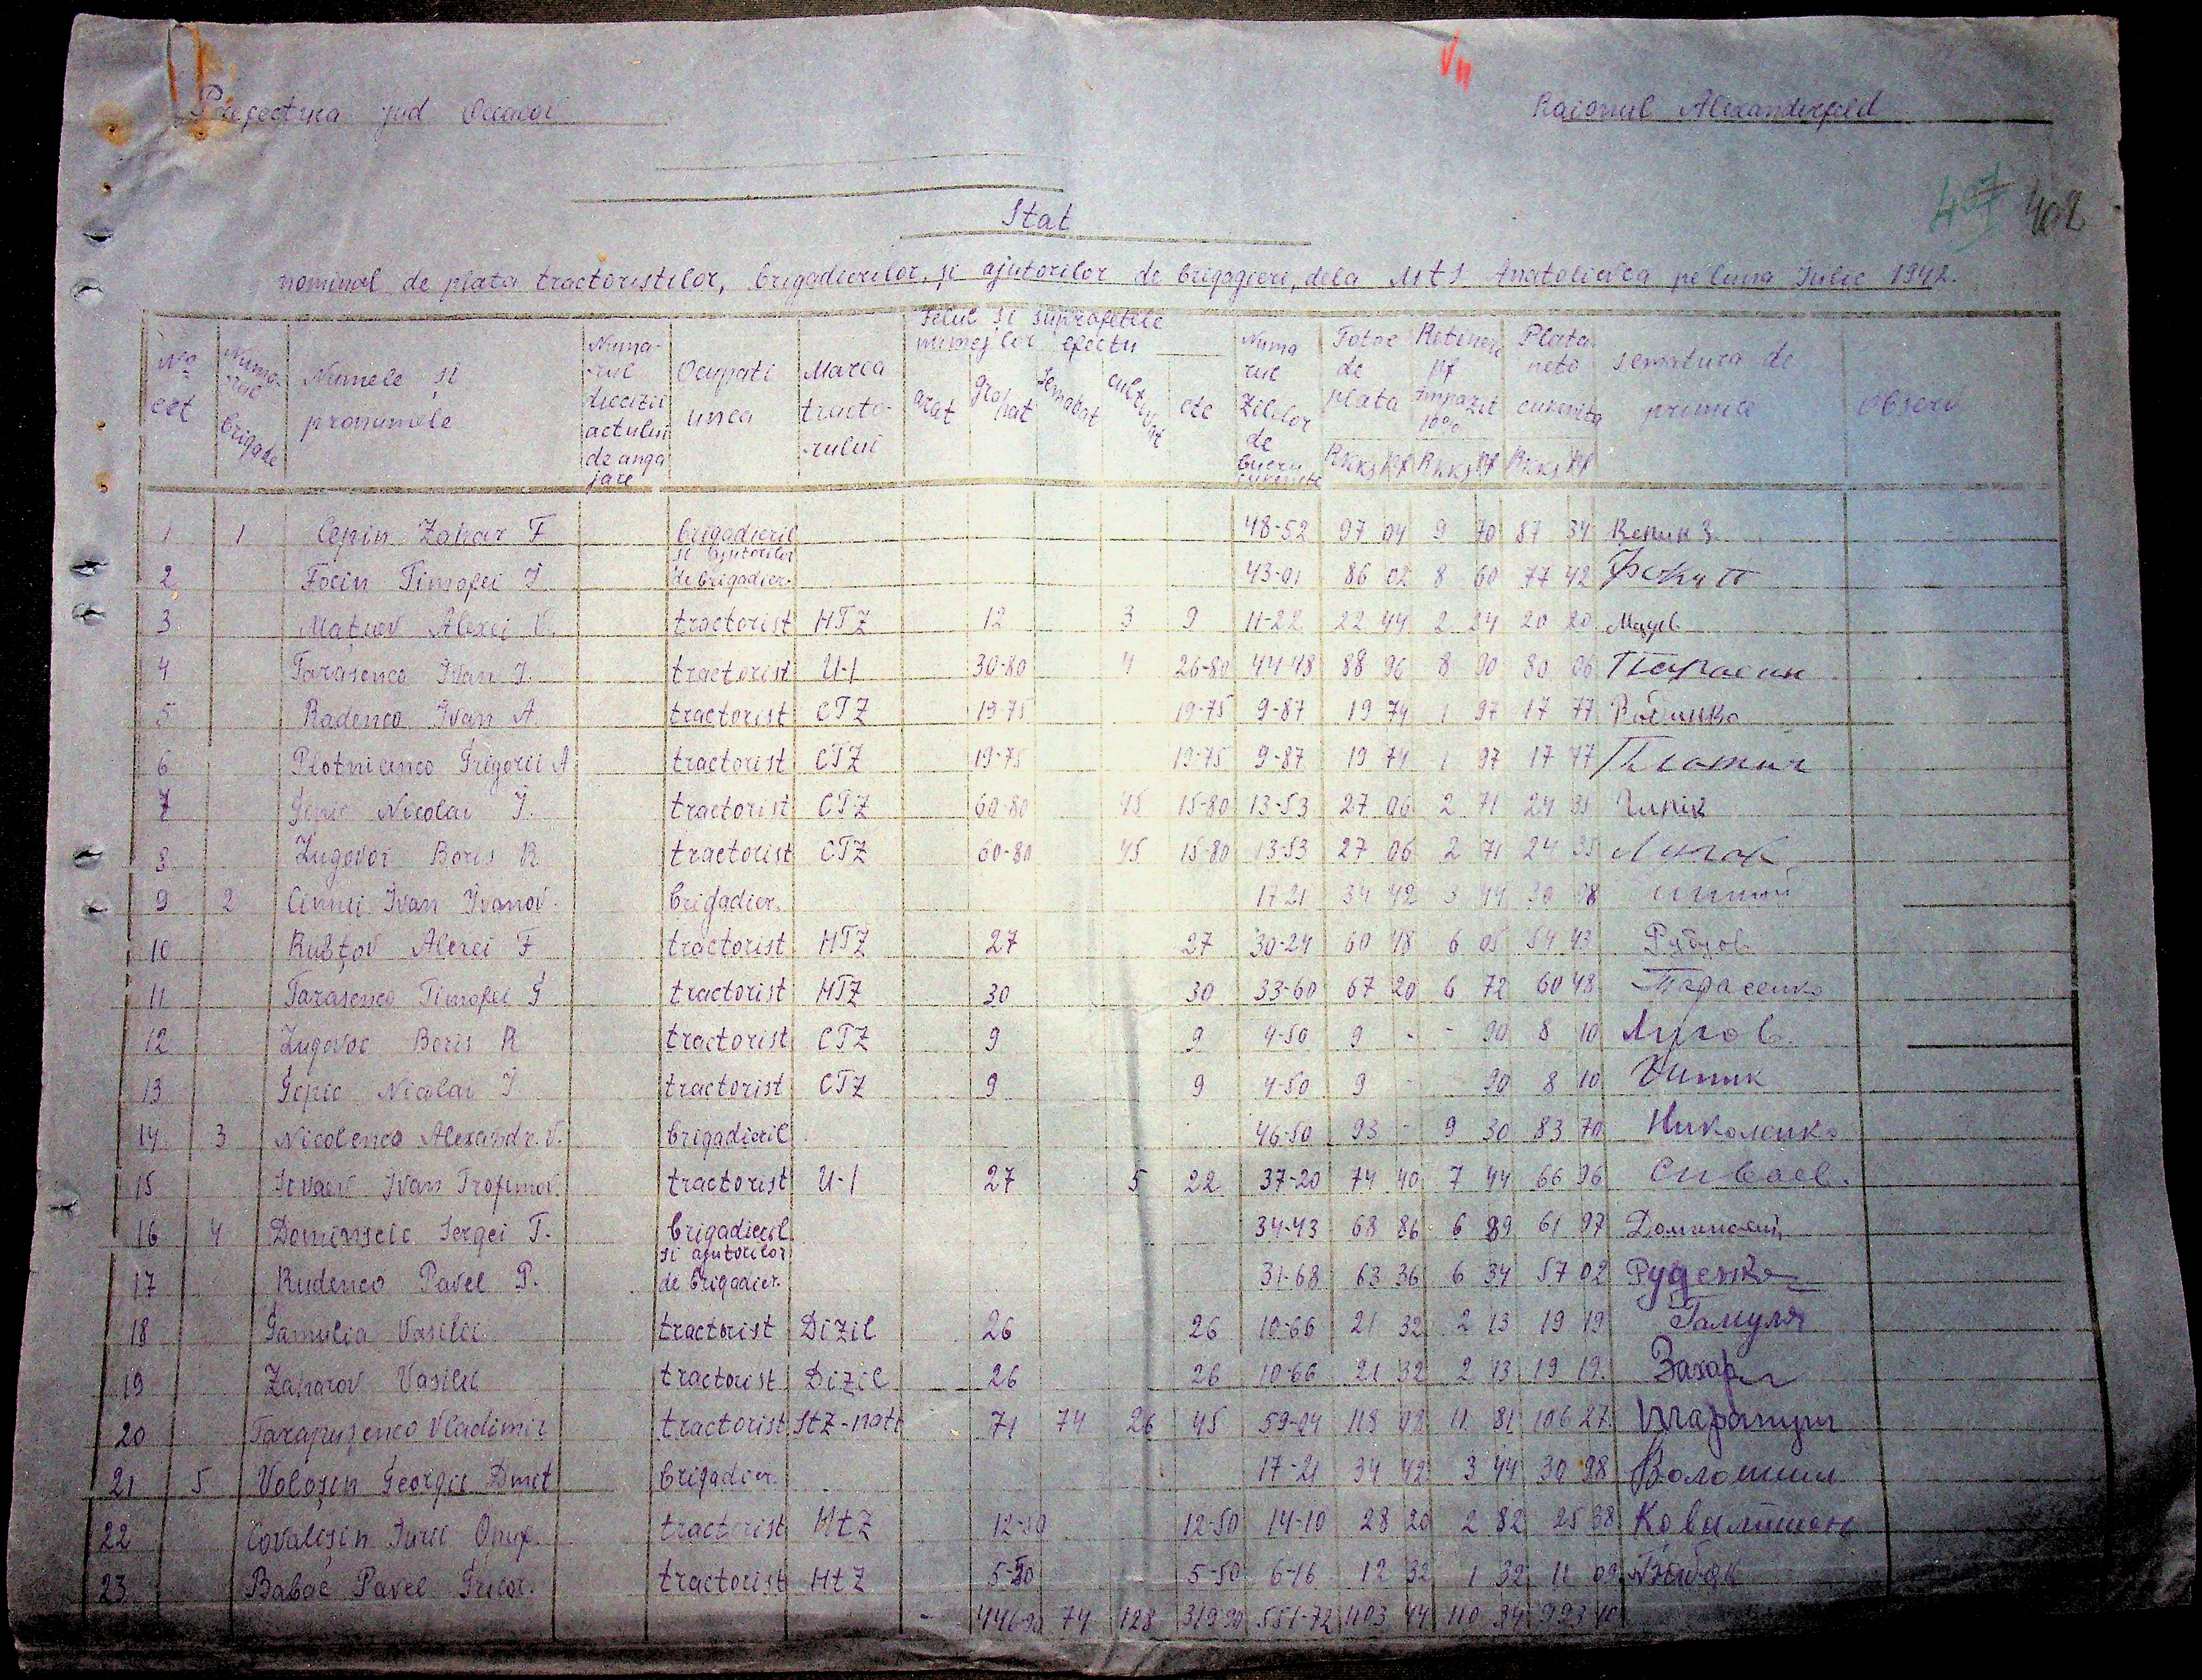 Prefectura jud Oceacov
Raionul Alexanderfeld
407 408
Stat
nominal de plata tractoristilor, brigadierilor, și ajutorilor de brigagieri, dela MtS Anatolievca pe luna Iulie 1942.
No crt | Numarul brigade | Numele și pronumele | Numarul deciziei actului de angajare | Ocupatiunea | Marca tractorului | Felul si suprafetele muncilor efectu | arat | grapat | semanat | cultivat | etc | Numarul zilelor de lucru | Totoe de plata | Retineri pf impozit 10% | Plata neto cuvenita | semnatura de primire | Observ
RKKS Pf RKKS Pf RKKS Pf
1 1 Cepin Zahar F brigadieril 48-52 97 04 9 70 87 34 Кепик З
si ajutorilor
2 Focin Timofei I de brigadier. 43-01 86 02 8 60 77 42
3 Mațuev Alexei V. tractorist HTZ 12 3 9 11-22 22 44 2 24 20 20 Мацуев
4 Tarasenco Ivan I. tractorist U-1 30-80 4 26-80 44-48 88 96 8 90 80 06 Тарасен
5 Radenco Ivan A. tractorist CTZ 19-75 19-75 9-87 19 74 1 97 17 77
6 Plotnicenco Grigorii A tractorist CTZ 19-75 19-75 9-87 19 74 1 97 17 77 Плотнич
7 Gepic Nicolai I. tractorist CTZ 60-80 45 15-80 13-53 27 06 2 71 24 35
8 Lugovoi Boris R tractorist CTZ 60-80 45 15-80 13-53 27 06 2 71 24 35 Лугов
9 2 Ivan Ivanov. brigadier. 17-21 34 42 3 44 30 98
10 Rubțov Alexei F tractorist HTZ 27 27 30-24 60 48 6 05 54 43 Рубцов
11 Tarasenco Timofei G tractorist HTZ 30 30 33-60 67 20 6 72 60 48 Тарасенко
12 Lugovoi Boris R tractorist CTZ 9 9 4-50 9 - - 90 8 10 Лугов.
13 Gepic Nicolai I. tractorist CTZ 9 9 4-50 9 - 90 8 10
14 3 Nicolenco Alexandr. V. brigadieril 46-50 93 - 9 30 83 70 Николенко
15 Sivaev Ivan Trofimov. tractorist U-1 27 5 22 37-20 74 40 7 44 66 96 Сиваев.
16 4 Dominscic Sergei T. brigadieril 34-43 68 86 6 89 61 97 Доминский
si ajutorilor
17 Rudenco Pavel P. de brigadier. 31-68 63 36 6 34 57 02 Руденко
18 Gamulia Vasilii tractorist Dizil 26 26 10-66 21 32 2 13 19 19 Гамуля
19 Zaharov Vasilii tractorist Dizil 26 26 10-66 21 32 2 13 19 19. Захаров
20 Tarapușenco Vladimir tractorist StZ-nati 71 74 26 45 59-04 118 08 11 81 106 27
21 5 Voloșin Georgii Dmit brigadier. 17-21 34 42 3 44 30 98 Волошин
22 Covalișin Iurii Onuf. tractorist HtZ 12-50 12-50 14-10 28 20 2 82 25 38 Ковалишен
23 Babac Pavel Grigor. tractorist HtZ 5-50 5-50 6-16 12 32 1 32 11 09 Бабак
- 446-90 74 128 319-90 551-72 1103 44 110 34 993 10